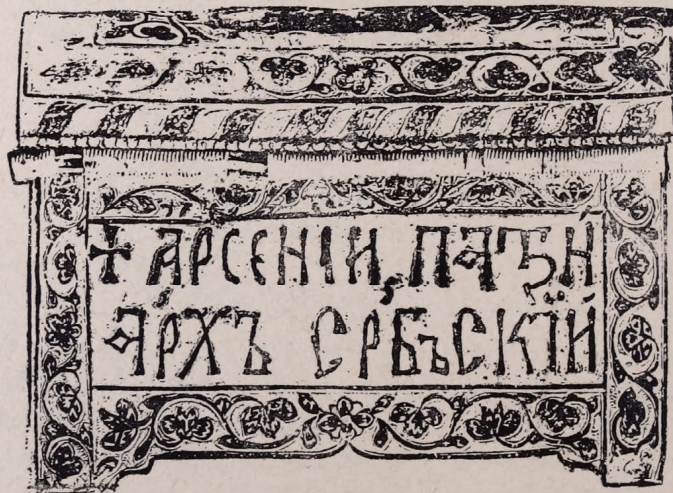 ✝ АРСЕНІИ, ПАТРИ
АРХЪ СРБЬСКЇЙ